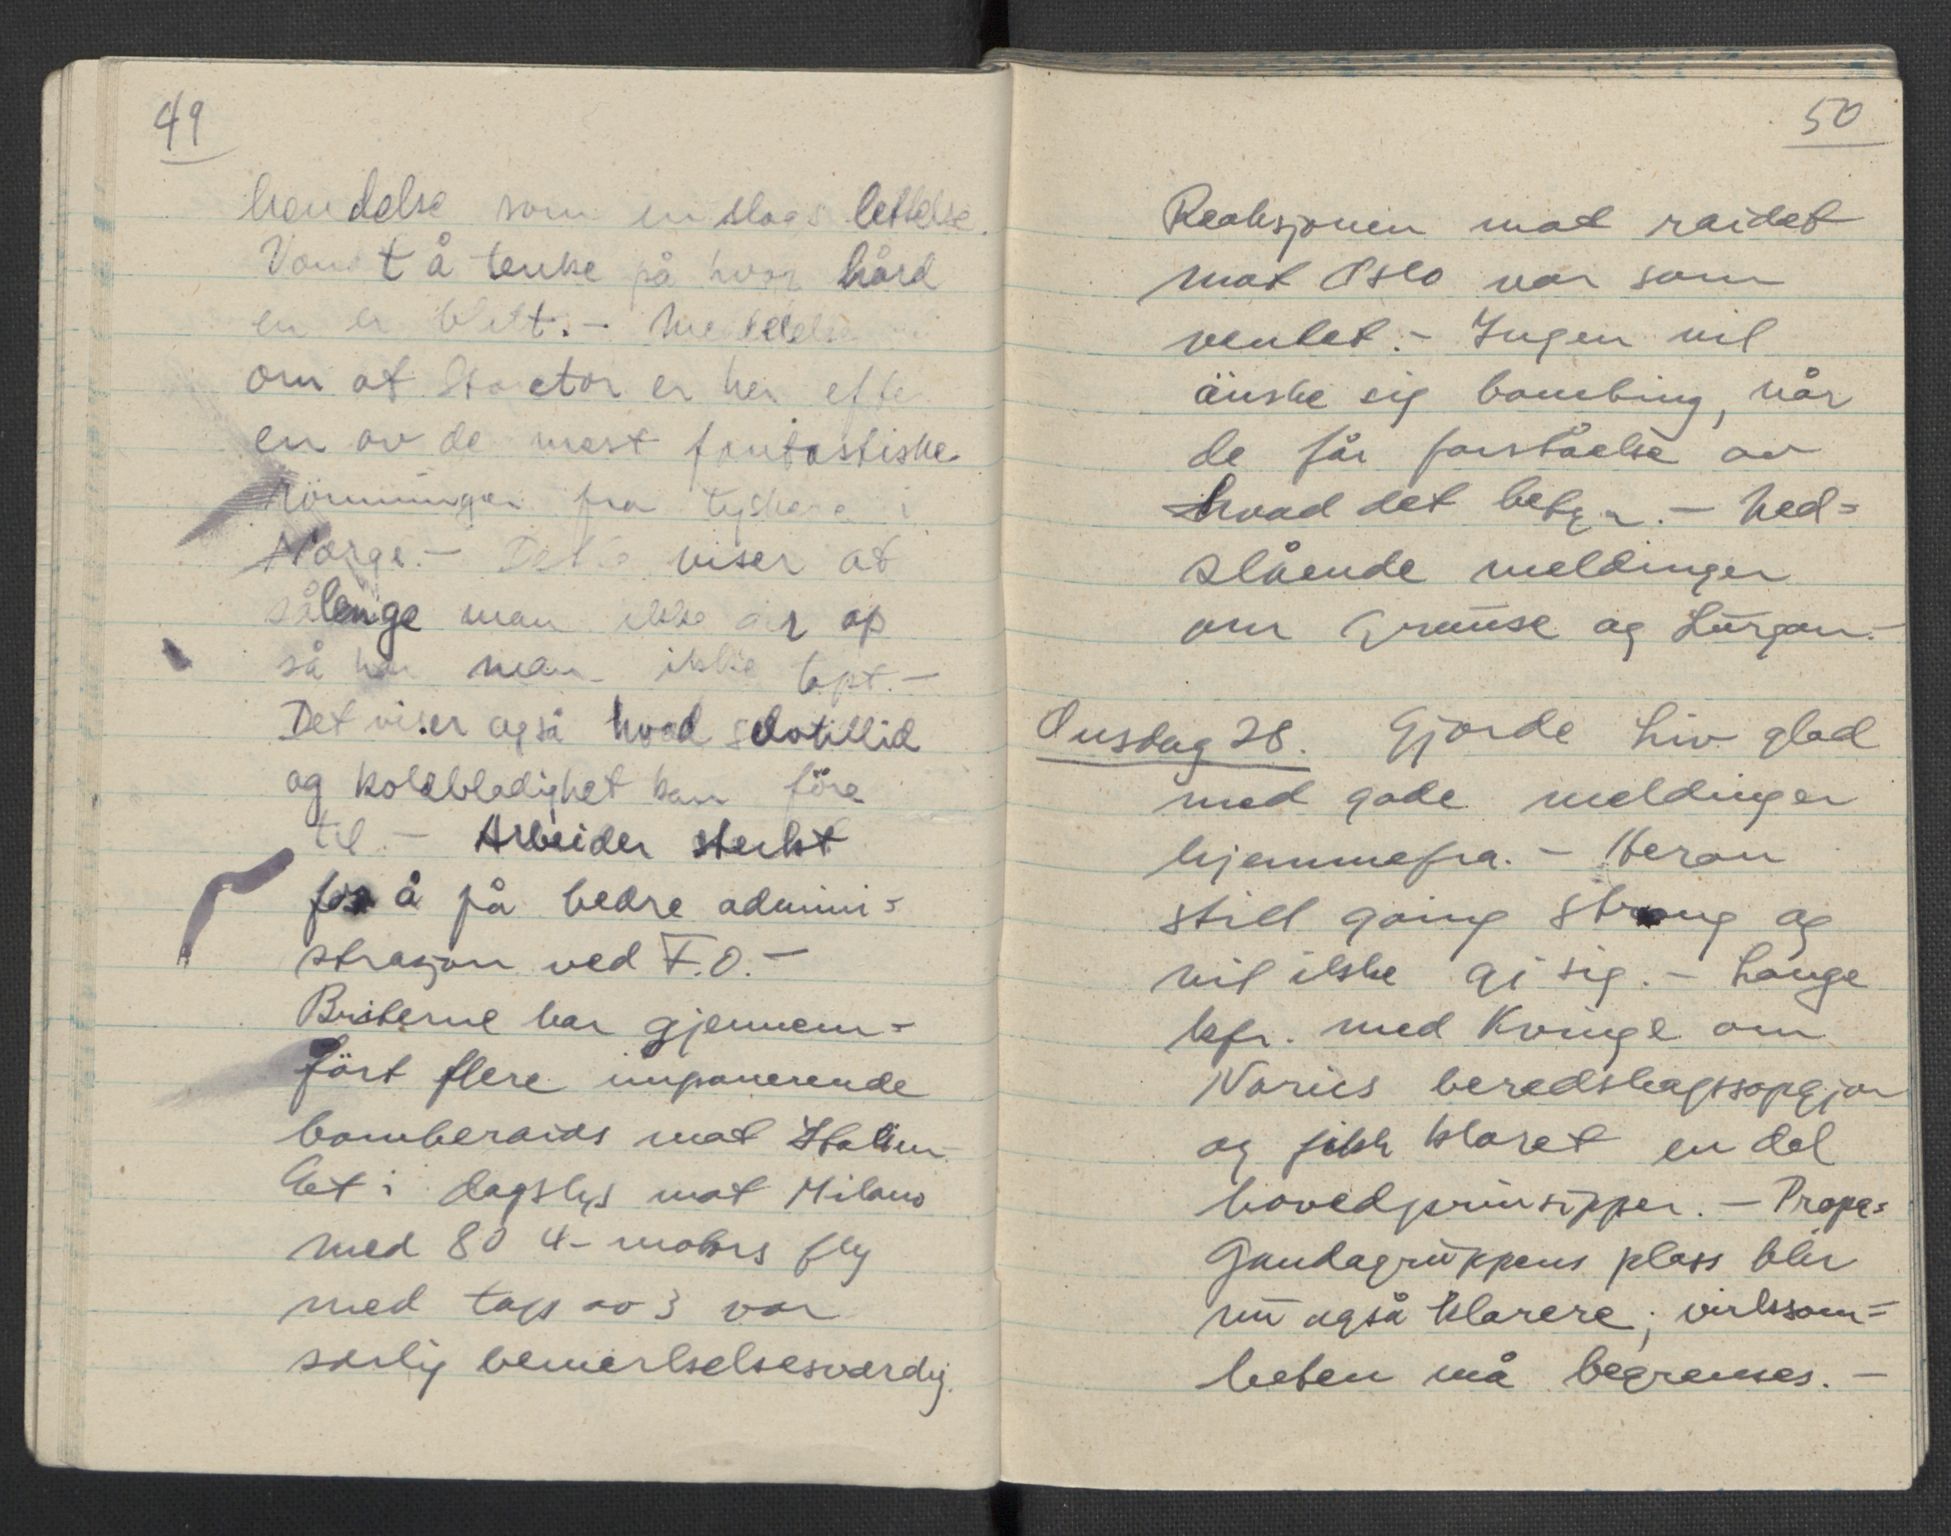 49
hendelse som en slags lettelse.
Vondt å tenke på hvor hård
en er blitt. - Meddelelse
om at er her efter
en av de mest fantastiske
römninger fra tyskere i
Norge. - Dette viser at
sålenge man ikke gir op
så har man ikke tapt. -
Det viser også hvad selvtillid
og koldblodighet kan före
til - Arbeider sterkt
for å få bedre admini=
strasjon ved F.O. -
Briterne har gjennem=
fört flere imponerende
bomberaids mot Italien
Et i dagslys mot Milano
med 80 4-motors fly
med tap av 3 var
særlig bemerkelsesverdig.
50
Reaksjonen mot raidet
mot Oslo var som
ventet. - Ingen vil
önske sig bombing, når
de får forståelse av
hvad det betyr. - Ned=
slående meldinger
om Grouse og Lurgan. -
Onsdag 28. Gjorde Liv glad
med gode meldinger
hjemmefra. - Heron
still going strong og
vil ikke gi sig. - Lange
kfr. med Kvinge om
Nories beredskapsopgjör
og fikk klaret en del
hovedprinsipper. - Propa=
gandagruppens plass blir
nu også klarere; virksom=
heten må begrenses. -